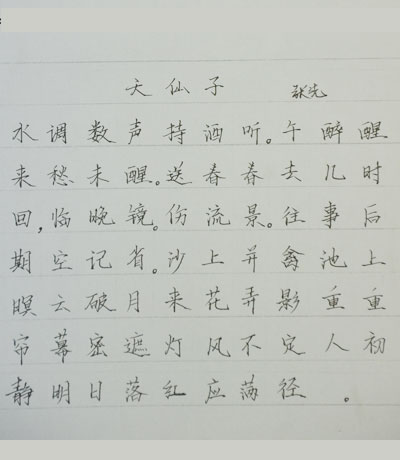 天仙子 张先
水调数声持酒听。午醉醒
来愁未醒。送春春去几时
回,临晚镜。伤流景。往事后
期空记省。沙上并禽池上
暝云破月来花弄影重重
帘幕密遮灯风不定人初
静明日落红应满径。